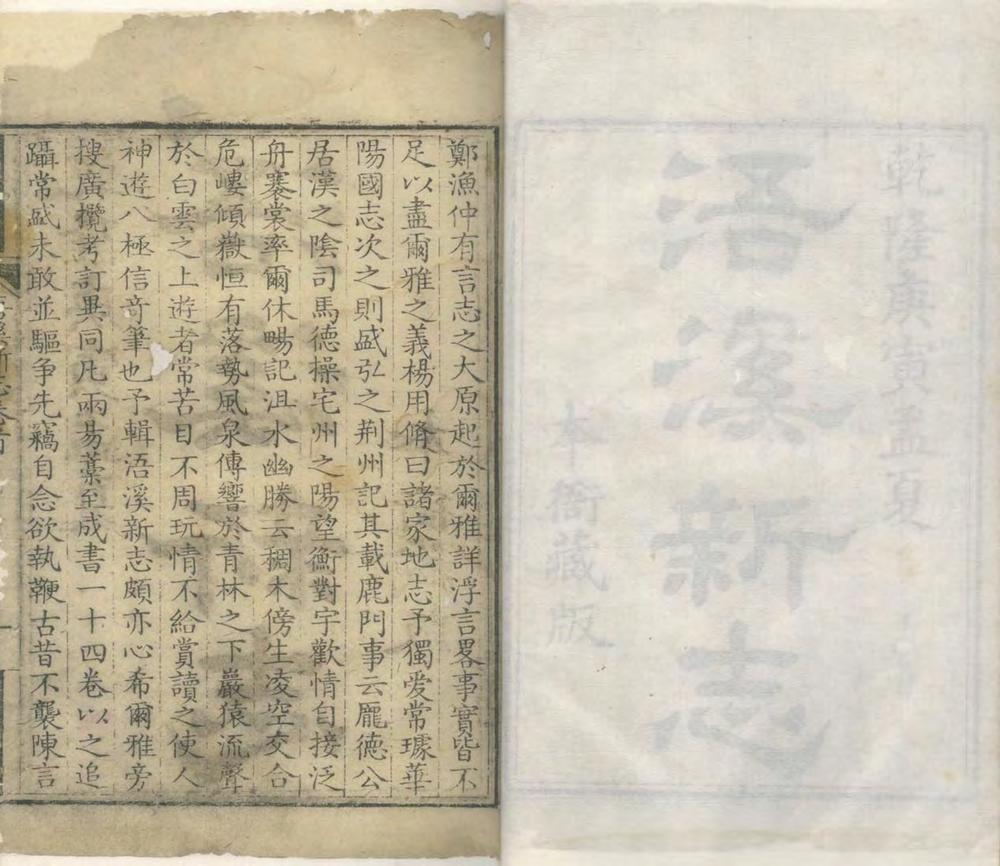 乾隆庚寅孟夏
浯溪新志
本衙藏版
鄭漁仲有言志之大原起於爾雅詳浮言畧事實皆不
足以盡爾雅之義楊用脩曰諸家地志予獨愛常璩華
陽國志次之則盛弘之荆州記其載鹿門事云龐德公
居漢之陰司馬德操宅州之陽望衡對宇歡情自接泛
舟褰裳率爾休暢記沮水幽勝云稠木傍生凌空交合
危嶁傾嶽恒有落勢風泉傳響於青林之下巖猿流聲
於白雲之上遊者常苦目不周玩情不給賞讀之使人
神遊八極信奇筆也予輯浯溪新志頗亦心希爾雅旁
搜廣攬考訂異同凢兩易藁至成書一十四卷以之追
躡常盛未敢並驅争先竊自念欲執鞭古昔不襲陳言